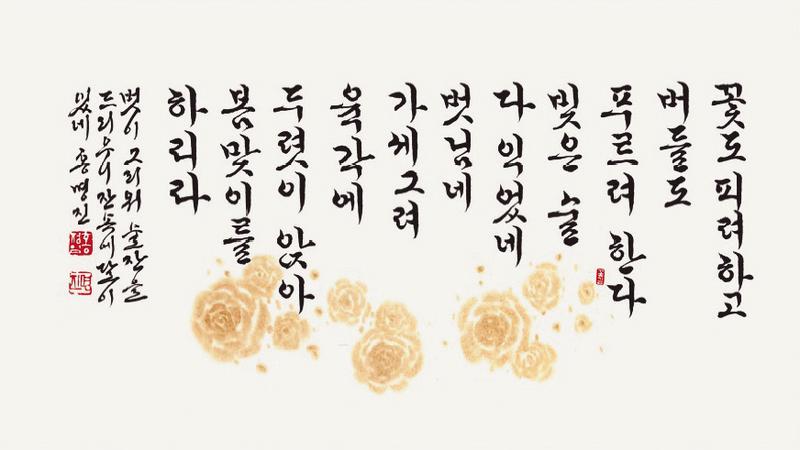 꽃도 피려하고
버들도
푸르려 한다
빚은 술
다 익었네
벗님네
가세그려
육각에
두렷이 앉아
봄맞이를
하리라
벗이 그리워 술잔을
드리우니 잔 속에 달이
있네 홍명진